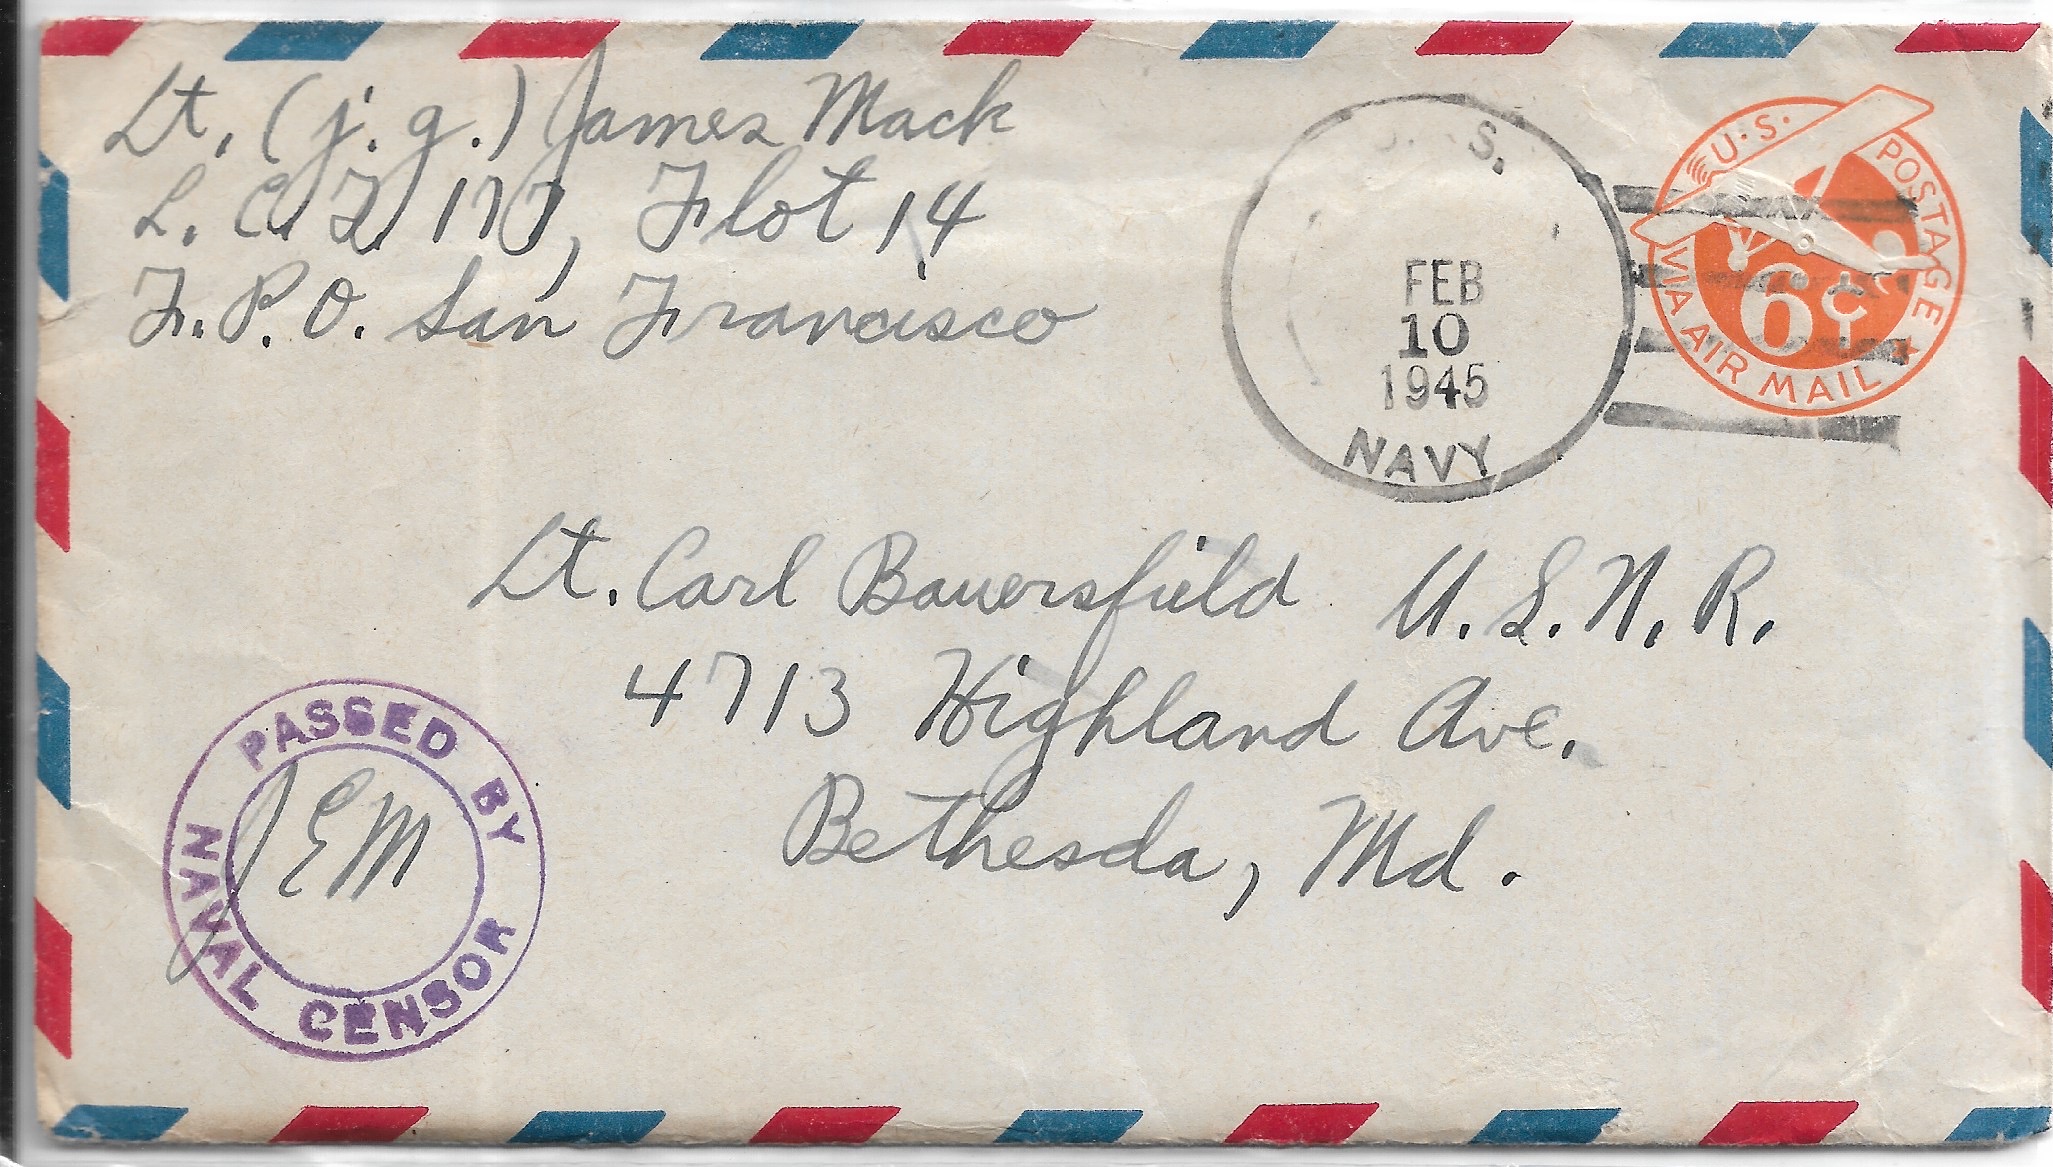 Lt. (j.g.) James Mack
L.C.I. 177, Flot 14
F.P.O. San Francisco
U. S.
FEB
10
1945
NAVY
U.S. POSTAGE
6¢
VIA AIR MAIL
Lt. Carl Bauersfield U.S.N.R.
4713 Highland Ave.
Bethesda, Md.
PASSED BY
JEM
NAVAL CENSOR